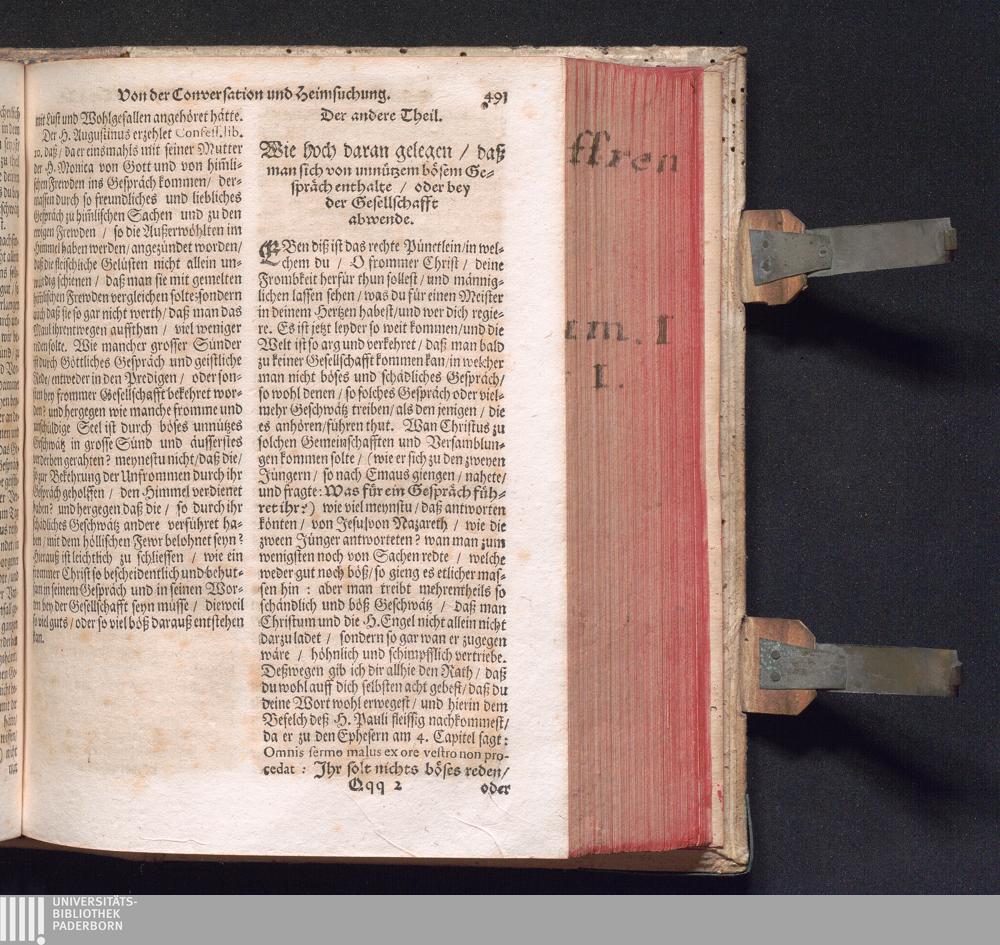 Von der Conversation und Heimsuchung. 491
mit Lust und Wohlgefallen angehöret hätte.
Der H. Augustinus erzehlet Confess. lib.
10. daß / da er einsmahls mit seiner Mutter
der H. Monica von Gott und von himli-
schen Frewden ins Gespräch kommen / der-
massen durch so freundliches und liebliches
Gespräch zu himlischen Sachen und zu den
ewigen Frewden / so die Außerwöhlten im
Himmel haben werden / angezündet worden /
daß die fleischliche Gelüsten nicht allein un-
würdig schienen / daß man sie mit gemelten
himlischen Frewden vergleichen solte: sondern
auch daß sie so gar nicht werth / daß man das
Maul ihrentwegen auffthun / viel weniger
reden solte. Wie mancher grosser Sünder
ist durch Göttliches Gespräch und geistliche
Rede / entweder in den Predigen / oder son-
sten bey frommer Gesellschafft bekehret wor-
den? und hergegen wie manche fromme und
unschüldige Seel ist durch böses unnützes
Geschwätz in grosse Sünd und äusserstes
verderben gerahten? meynestu nicht / daß die /
so zur Bekehrung der Unfrommen durch ihr
Gespräch geholffen / den Himmel verdienet
haben? und hergegen daß die / so durch ihr
schädliches Geschwätz andere verführet ha-
ben / mit dem höllischen Fewr belohnet seyn?
Hierauß ist leichtlich zu schliessen / wie ein
frommer Christ so bescheidentlich und behut-
sam in seinem Gespräch und in seinen Wor-
ten bey der Gesellschafft seyn müsse / dieweil
so viel guts / oder so viel böß darauß entstehen
kan.
Der andere Theil.
Wie hoch daran gelegen / daß
man sich von unnützem bösem Ge-
spräch enthalte / oder bey
der Gesellschafft
abwende.
EBen diß ist das rechte Pünctlein / in wel-
chem du / O frommer Christ / deine
Frombkeit herfür thun sollest / und männig-
lichen lassen sehen / was du für einen Meister
in deinem Hertzen habest / und wer dich regie-
re. Es ist jetzt leyder so weit kommen / und die
Welt ist so arg und verkehret / daß man bald
zu keiner Gesellschafft kommen kan / in welcher
man nicht böses und schädliches Gespräch /
so wohl denen / so solches Gespräch oder viel-
mehr Geschwätz treiben / als den jenigen / die
es anhören / führen thut. Wan Christus zu
solchen Gemeinschafften und Versamblun-
gen kommen solte / (wie er sich zu den zweyen
Jüngern / so nach Emaus giengen / nahete /
und fragte: Was für ein Gespräch füh-
ret ihr?) wie viel meynstu / daß antworten
könten / von Jesu von Nazareth / wie die
zween Jünger antworteten? wan man zum
wenigsten noch von Sachen redte / welche
weder gut noch böß / so gieng es etlicher mas-
sen hin: aber man treibt mehrentheils so
schändlich und böß Geschwätz / daß man
Christum und die H. Engel nicht allein nicht
darzu ladet / sondern so gar wan er zugegen
wäre / höhnlich und schimpfflich vertriebe.
Deßwegen gib ich dir allhie den Rath / daß
du wohl auff dich selbsten acht gebest / daß du
deine Wort wohl erwegest / und hierin dem
Befelch deß H. Pauli fleissig nachkommest /
da er zu den Ephesern am 4. Capitel sagt:
Omnis sermo malus ex ore vestro non pro-
cedat: Ihr solt nichts böses reden /
Qqq 2 oder
ffren
um. I
I.
UNIVERSITÄTS-
BIBLIOTHEK
PADERBORN